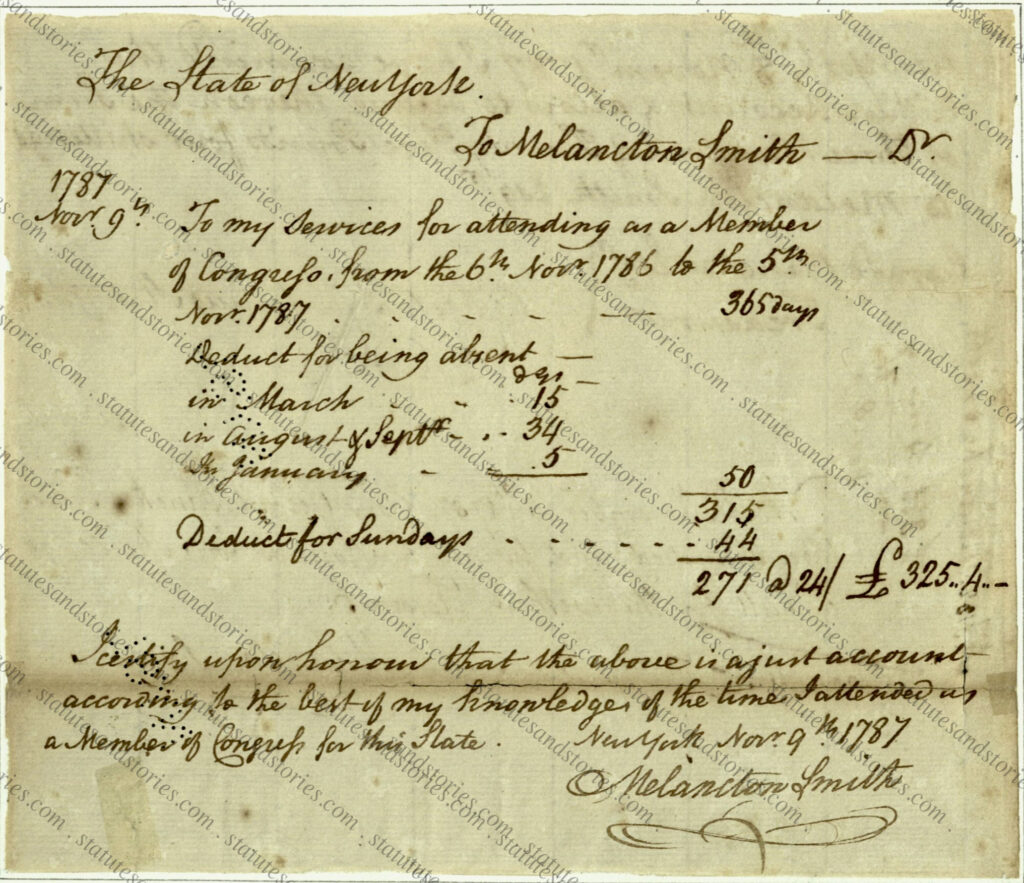 The State of New York.
To Melancton Smith — Dr.
1787
Novr. 9th. To my Services for attending as a Member
of Congress. from the 6th. Novr. 1786 to the 5th.
Novr. 1787 . - - - — 365 days
Deduct for being absent —
dys —
in March - - . 15
in August & Septr - . . 34
In January - . 5
50
315
Deduct for Sundays . - - - - - . 44
271 @ 24/ £ 325..4..-
I certify upon honour that the above is a just account
according to the best of my knowledge, of the time I attended as
a Member of Congress for this State. New York Novr. 9th. 1787
Melancton Smith
statutesandstories.com